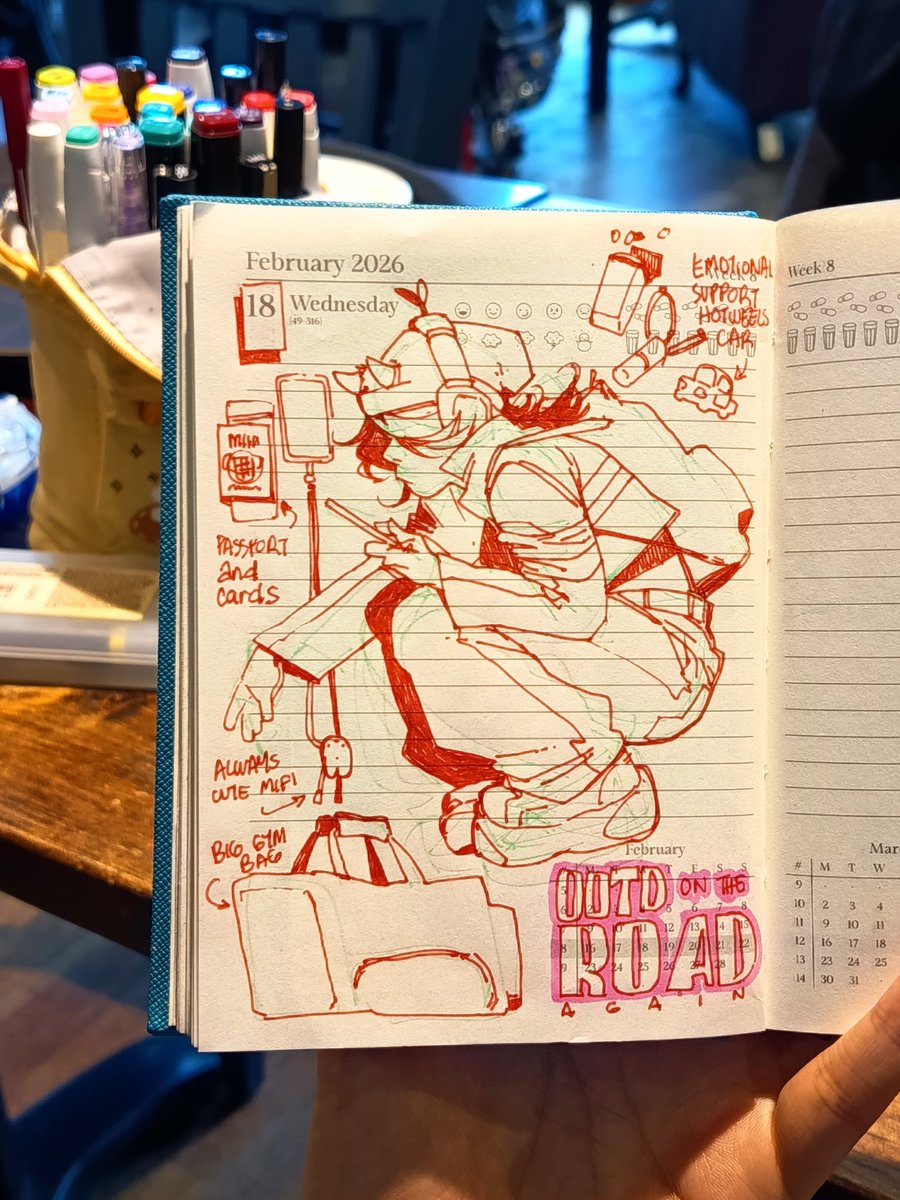 February 2026
18 Wednesday
(49-316)
EMOTIONAL
SUPPORT
HOTWEELS
CAR
PASSPORT
and
cards
ALWAYS
CUTE MIFI
BIG GYM
BAG
February
OOTD ON THE
ROAD
AGAIN
Week 8
# M T W
9
10 2 3 4
11 9 10 11
12 16 17 18
13 23 24 25
14 30 31